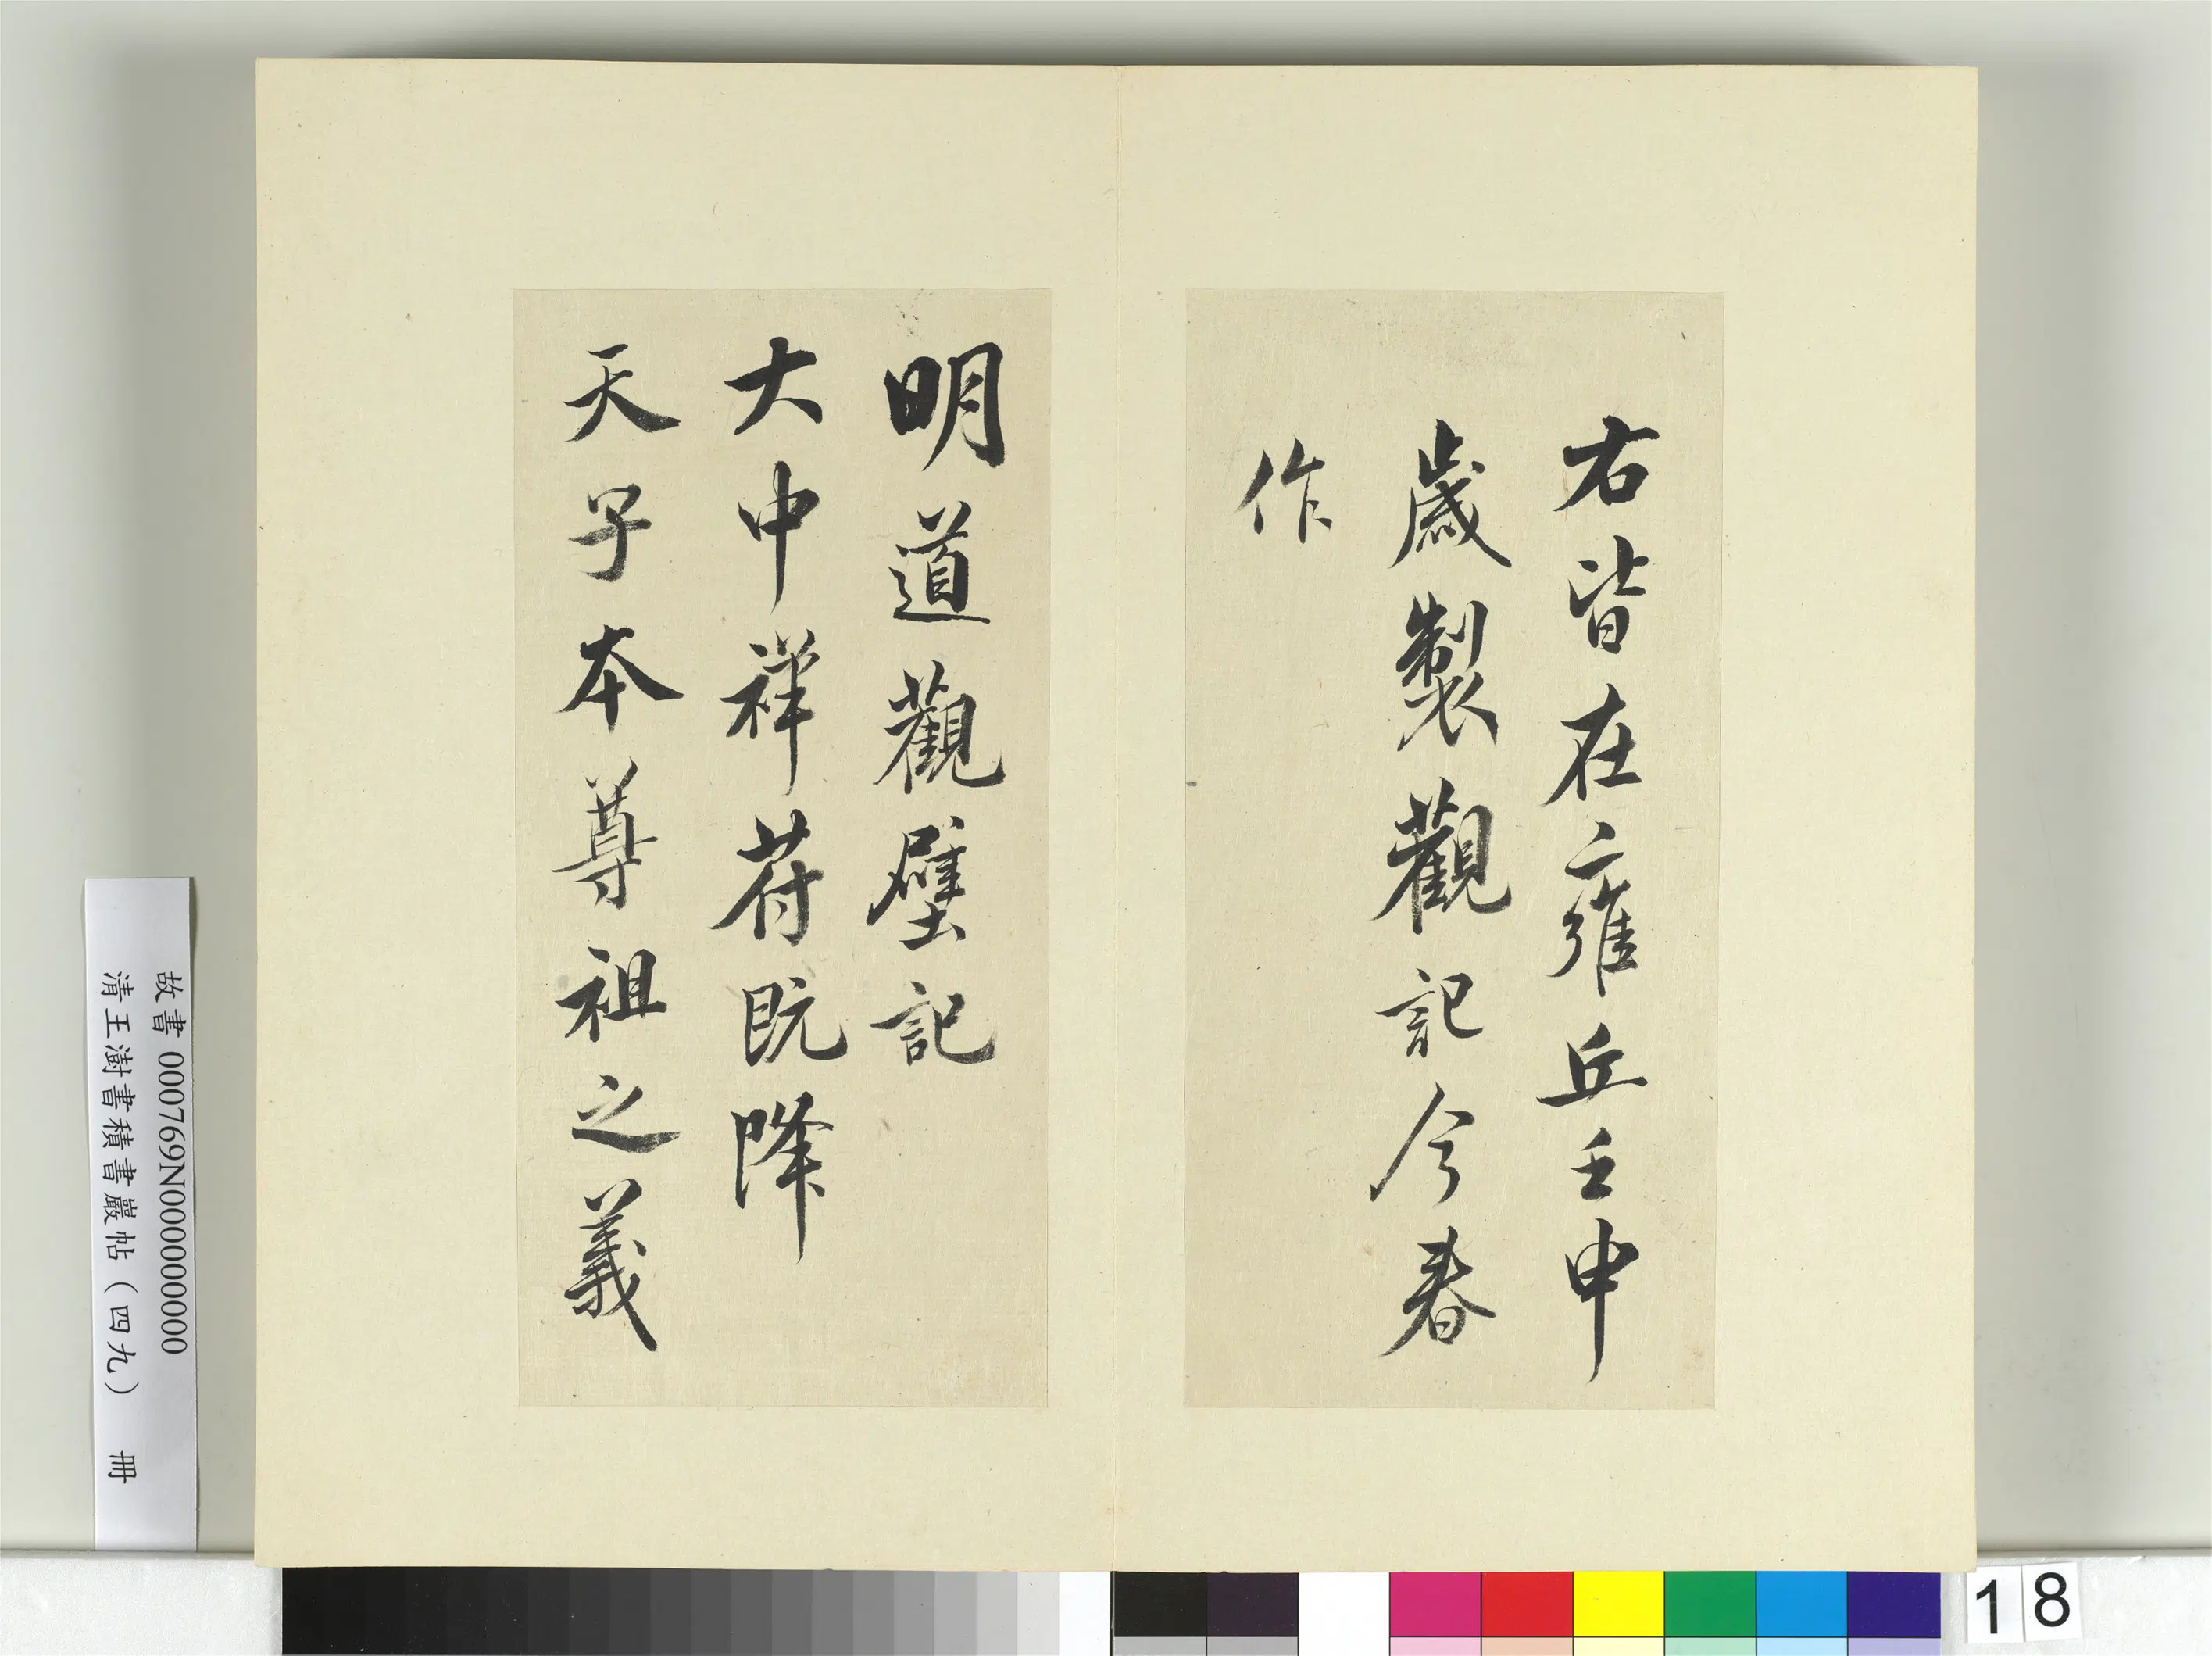 右皆在雍丘壬申
歲製觀記今春
作
明道觀壁記
大中祥符既降
天子本尊祖之義
故書 000769N000000000
清王澍書積書巖帖（四九） 冊
18